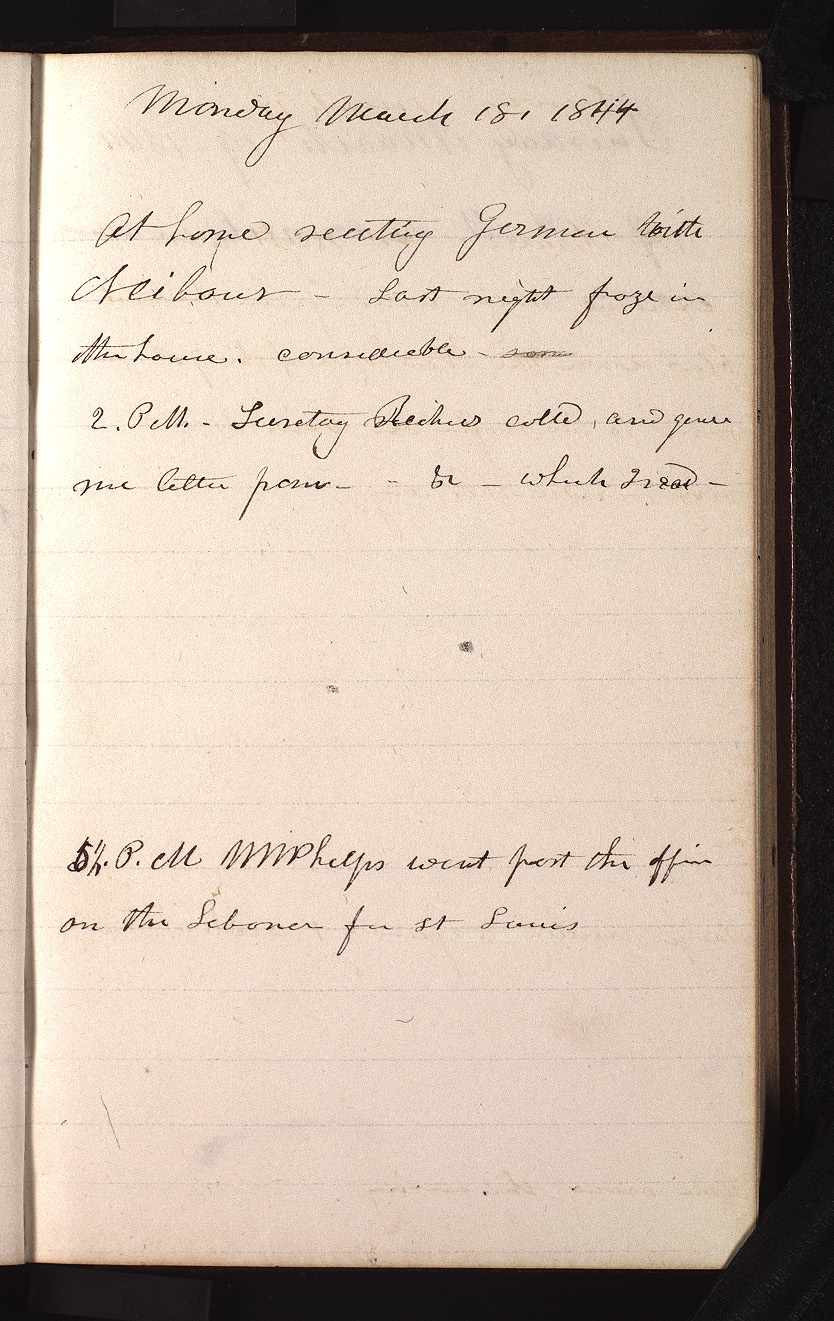 Monday March 18, 1844
At home reciting German with
Neibour - Last night froze in
the house. considerable -
2. P.M. - called, and gave
me letter from - - &c - which I read -
5½. P. M W W Phelps went past the office
on the for st Louis